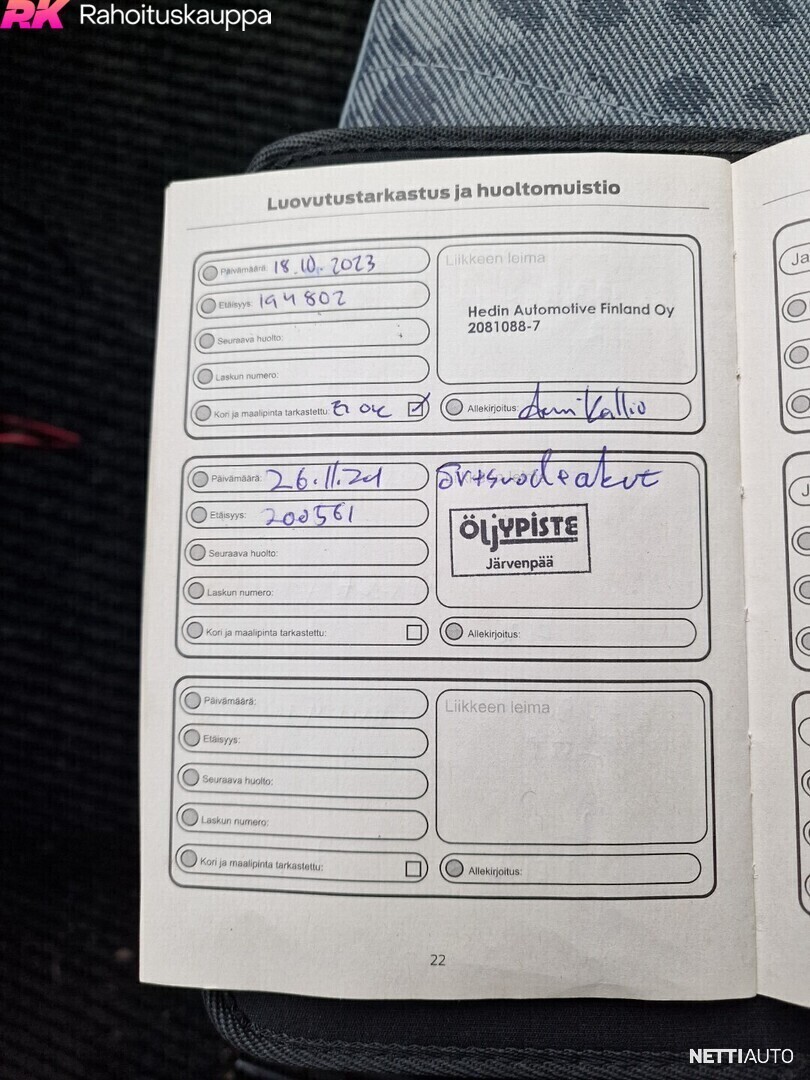 RK Rahoituskauppa
Luovutustarkastus ja huoltomuistio
Päivämäärä: 18.10.2023
Etäisyys: 194802
Seuraava huolto:
Laskun numero:
Kori ja maalipinta tarkastettu: Ei ok
Liikkeen leima
Hedin Automotive Finland Oy
2081088-7
Allekirjoitus:
Päivämäärä: 26.11.24
Etäisyys: 200561
Seuraava huolto:
Laskun numero:
Kori ja maalipinta tarkastettu:
ÖLJYPISTE
Järvenpää
Allekirjoitus:
Päivämäärä:
Etäisyys:
Seuraava huolto:
Laskun numero:
Kori ja maalipinta tarkastettu:
Liikkeen leima
Allekirjoitus:
22
Ja
J
NETTIAUTO